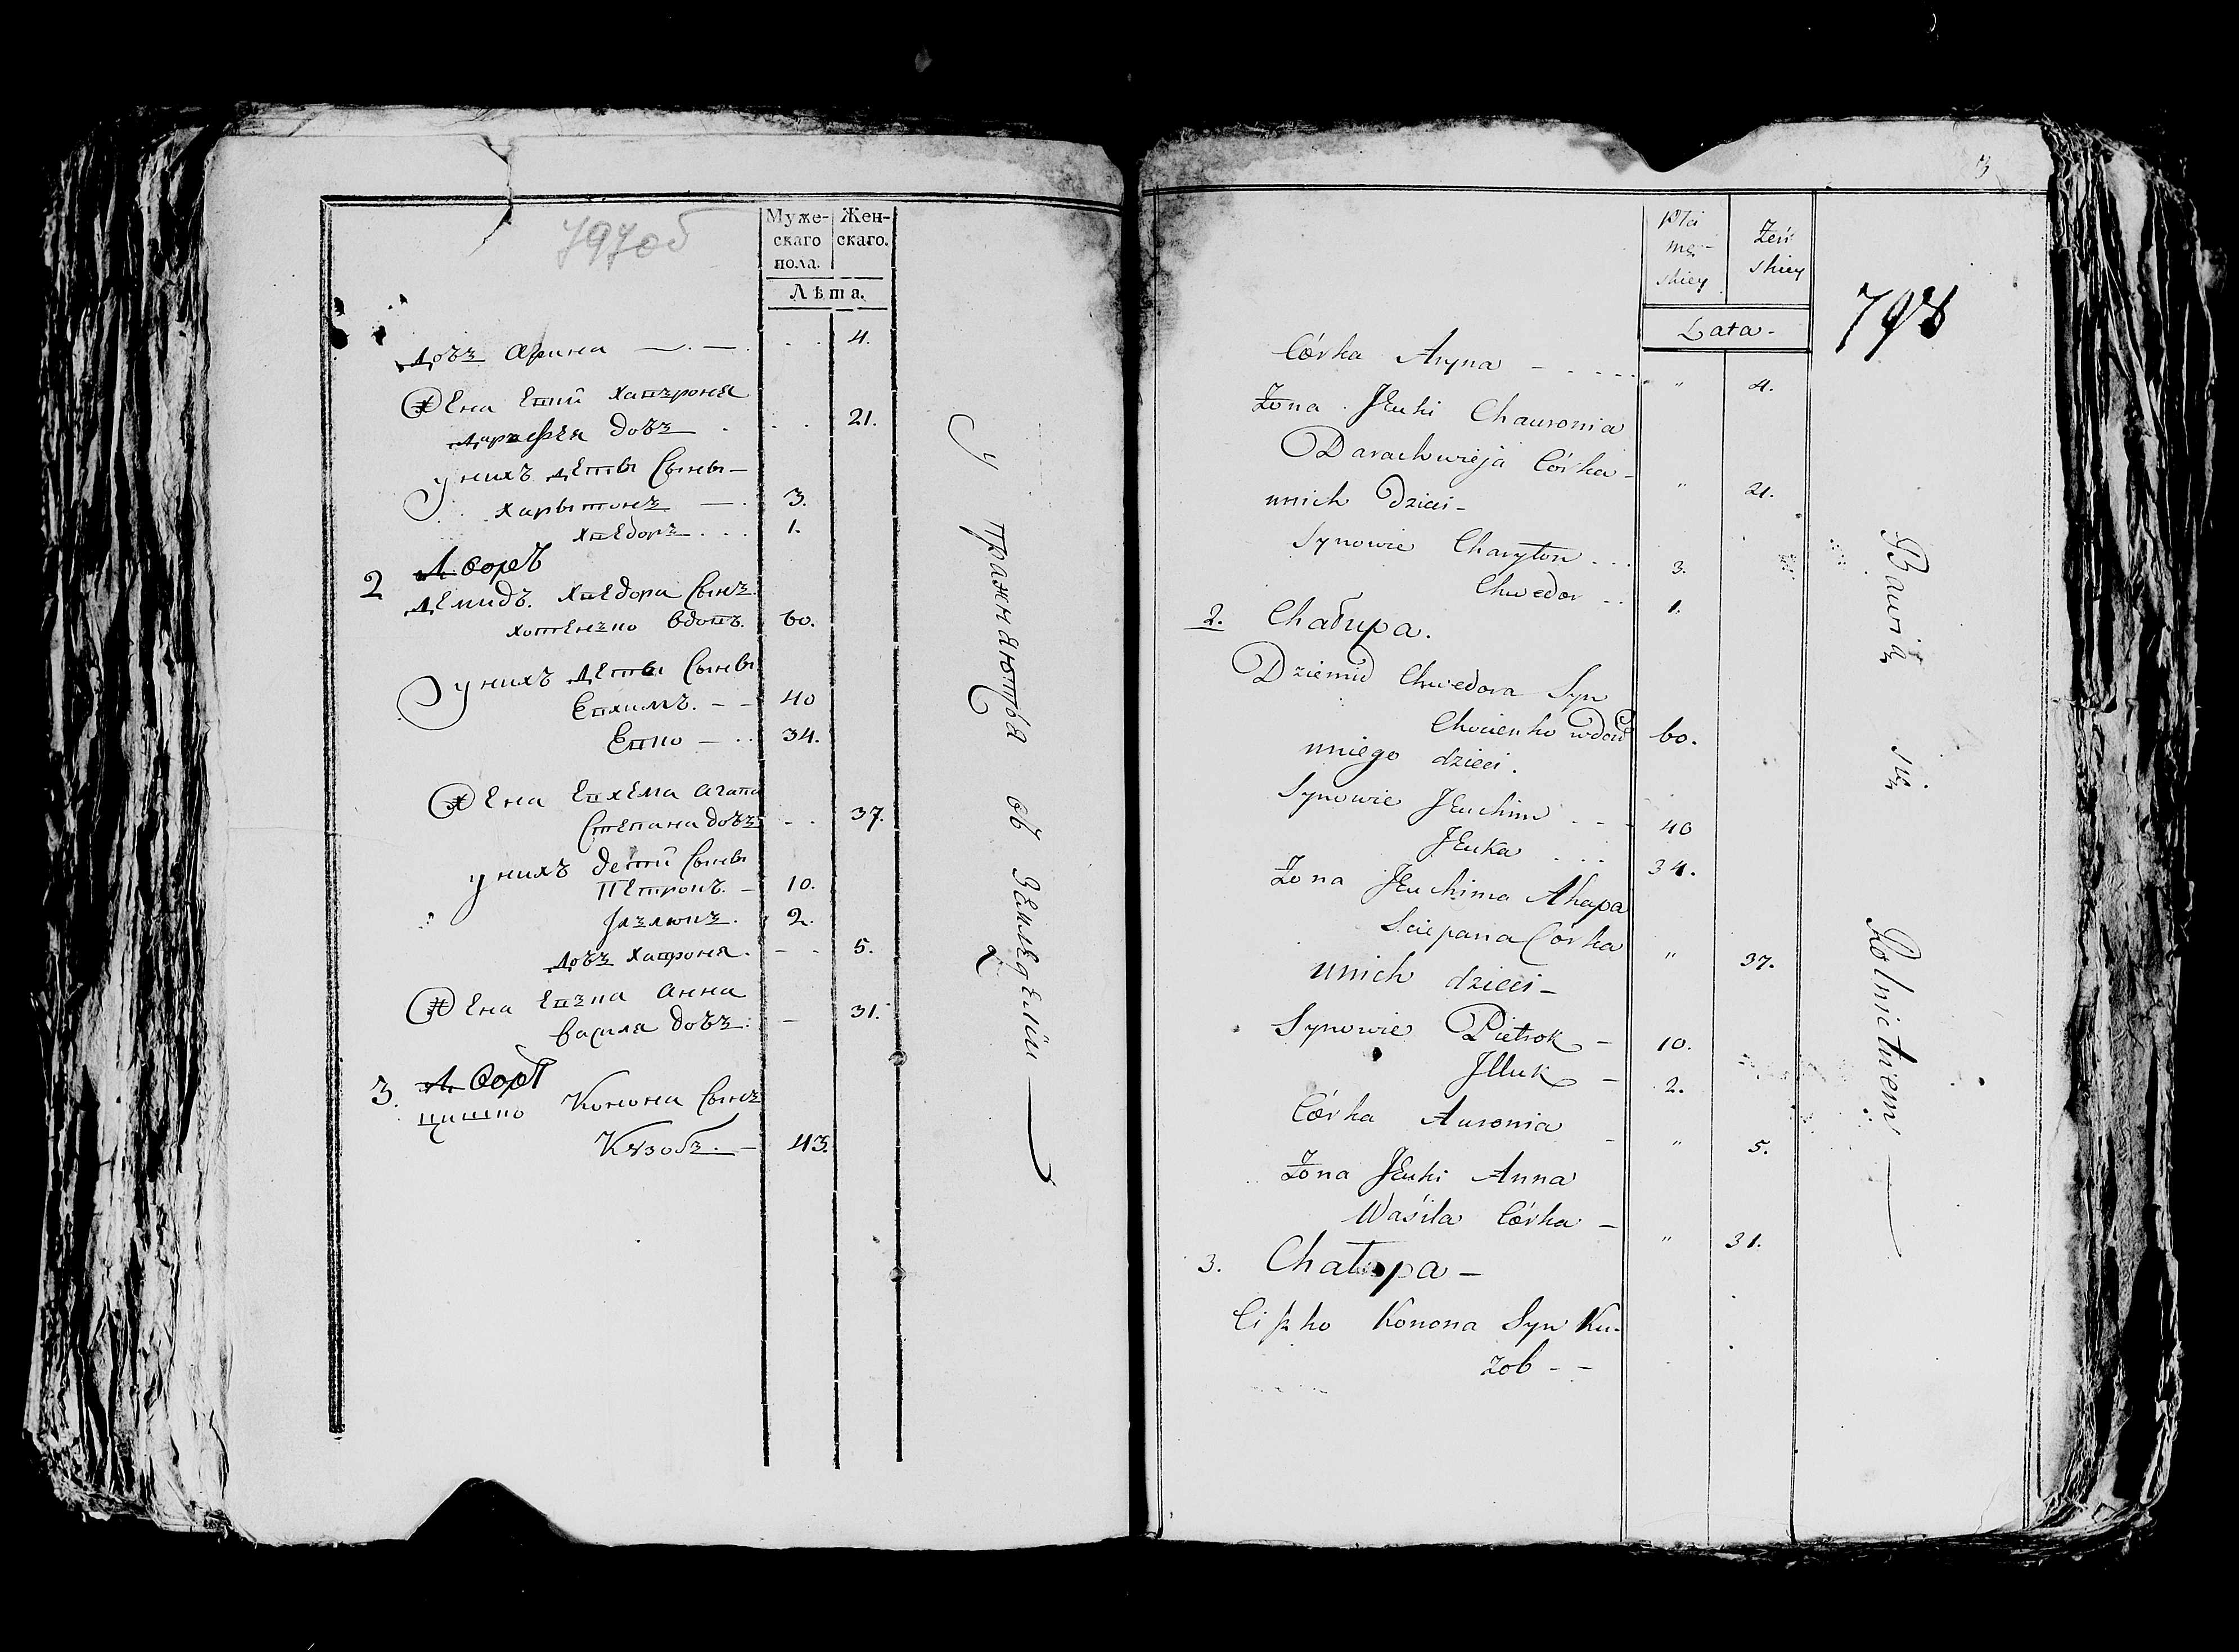 797об
Муже-
скаго
пола.
Жен-
скаго.
Лѣта.
дочь Арина — . — . . . 4.
Жена Евки Хавъроня
Дарахвея дочь . . . 21.
У нихъ дети Сыны —
Харытонъ — . 3.
Хведоръ . . . 1.
2 Дворъ
Демидъ Хведора Сынъ
Хотенько вдовъ. 60.
У нихъ дети Сыны
Евхимъ. — — 40
Евко — . . 34.
Жена Евхима Агапа
Степана дочь — . 37.
У нихъ дети Сыны
Петрокъ. — 10.
2.
дочь Хавроня. — . 5.
Жена Евка Анна
Васила дочь: — 31.
3. Дворъ
Цишко Конона Сынъ
Кузобъ. — 43.
Упражняютъся въ Земледелии —
3
798
Płci
mę-
skiey
Żeń
skiey
Lata -
Córka Aryna - . . - - . " 4.
Żona JEuki Chauronia
Darachwieja Córka - " 21.
unich Dzieci -
Synowie Charyton . . . 3.
Chwedor . . 1.
2. Chałupa.
Dziemid Chwedora Syn
Chocienko wdow 60.
uniego dzieci.
Synowie JEuchim . - - 40
JEuka . . . 34.
Żona JEuchima Ahapa
Sciepana Córka " 37.
unich dzieci -
Synowie Pietrok - 10.
Jlluk - 2.
Córka Auronia - " 5.
Żona JEuki Anna
Waśila Córka - " 31.
3. Chałupa -
Ciszko Konona Syn Ku-
zob - -
Bawią się Rolnictwem —